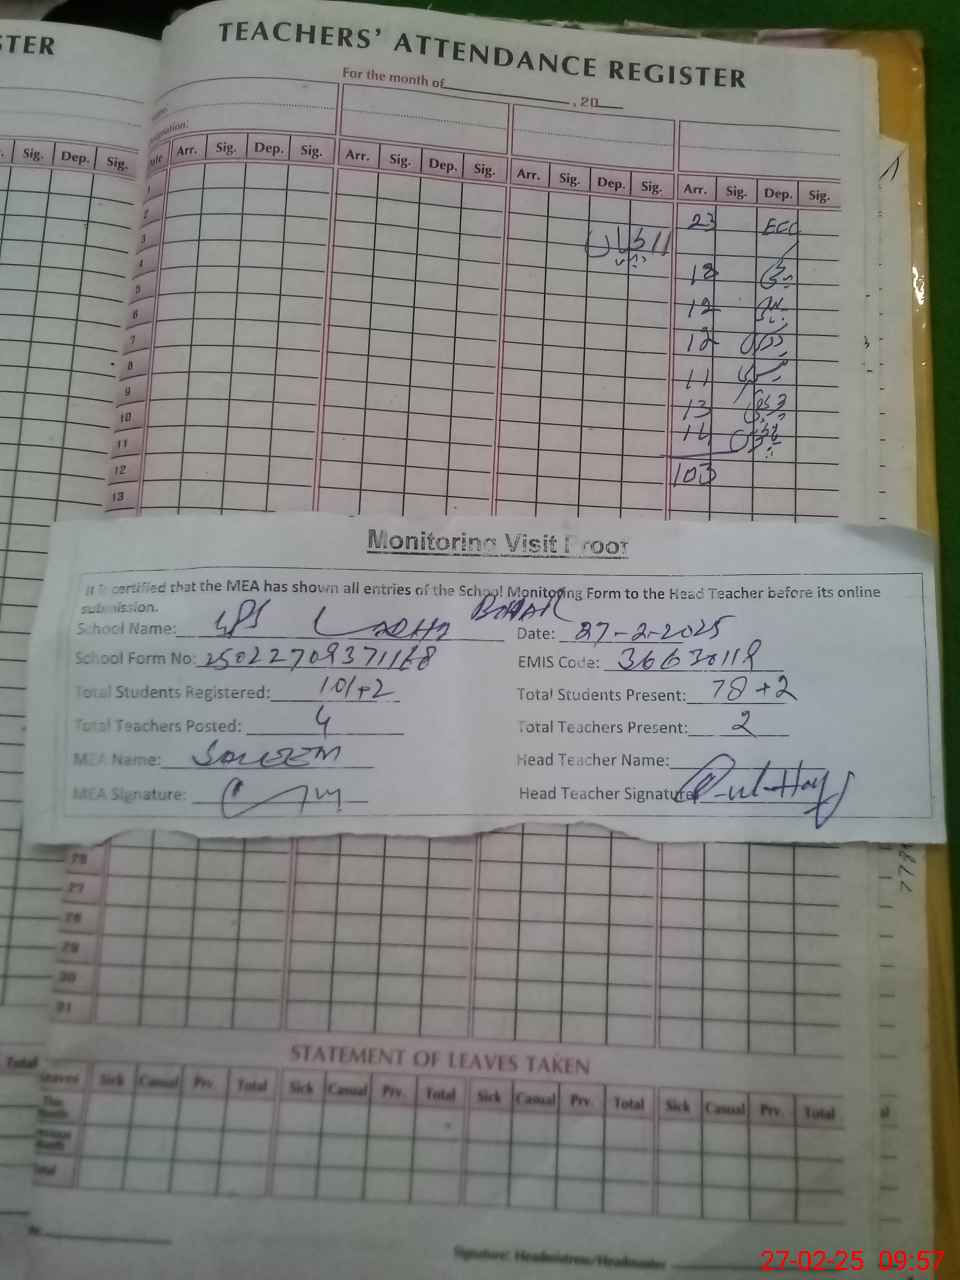 STER
TEACHERS' ATTENDANCE REGISTER
For the month of , 20
Sig. Dep. Sig.
Date Arr. Sig. Dep. Sig. Arr. Sig. Dep. Sig. Arr. Sig. Dep. Sig. Arr. Sig. Dep. Sig.
1
2 23 ECC
3
4 12
5 12
6
7 12
8 11
9 13
10 14
11
12 103
13
Monitoring Visit Proof
It is certified that the MEA has shown all entries of the School Monitoring Form to the Head Teacher before its online
submission.
School Name: GPS Date: 27-2-2025
School Form No: 25022709371168 EMIS Code: 36630118
Total Students Registered: 101+2 Total Students Present: 78+2
Total Teachers Posted: 4 Total Teachers Present: 2
MEA Name: SALEEM Head Teacher Name:
MEA Signature: Head Teacher Signature
26
27
28
29
30
31
STATEMENT OF LEAVES TAKEN
Total
Leaves Sick Casual Prv. Total Sick Casual Prv. Total Sick Casual Prv. Total Sick Casual Prv. Total
This Month
Previous Month
Total
Signature: Headmistress/Headmaster
27-02-25 09:57